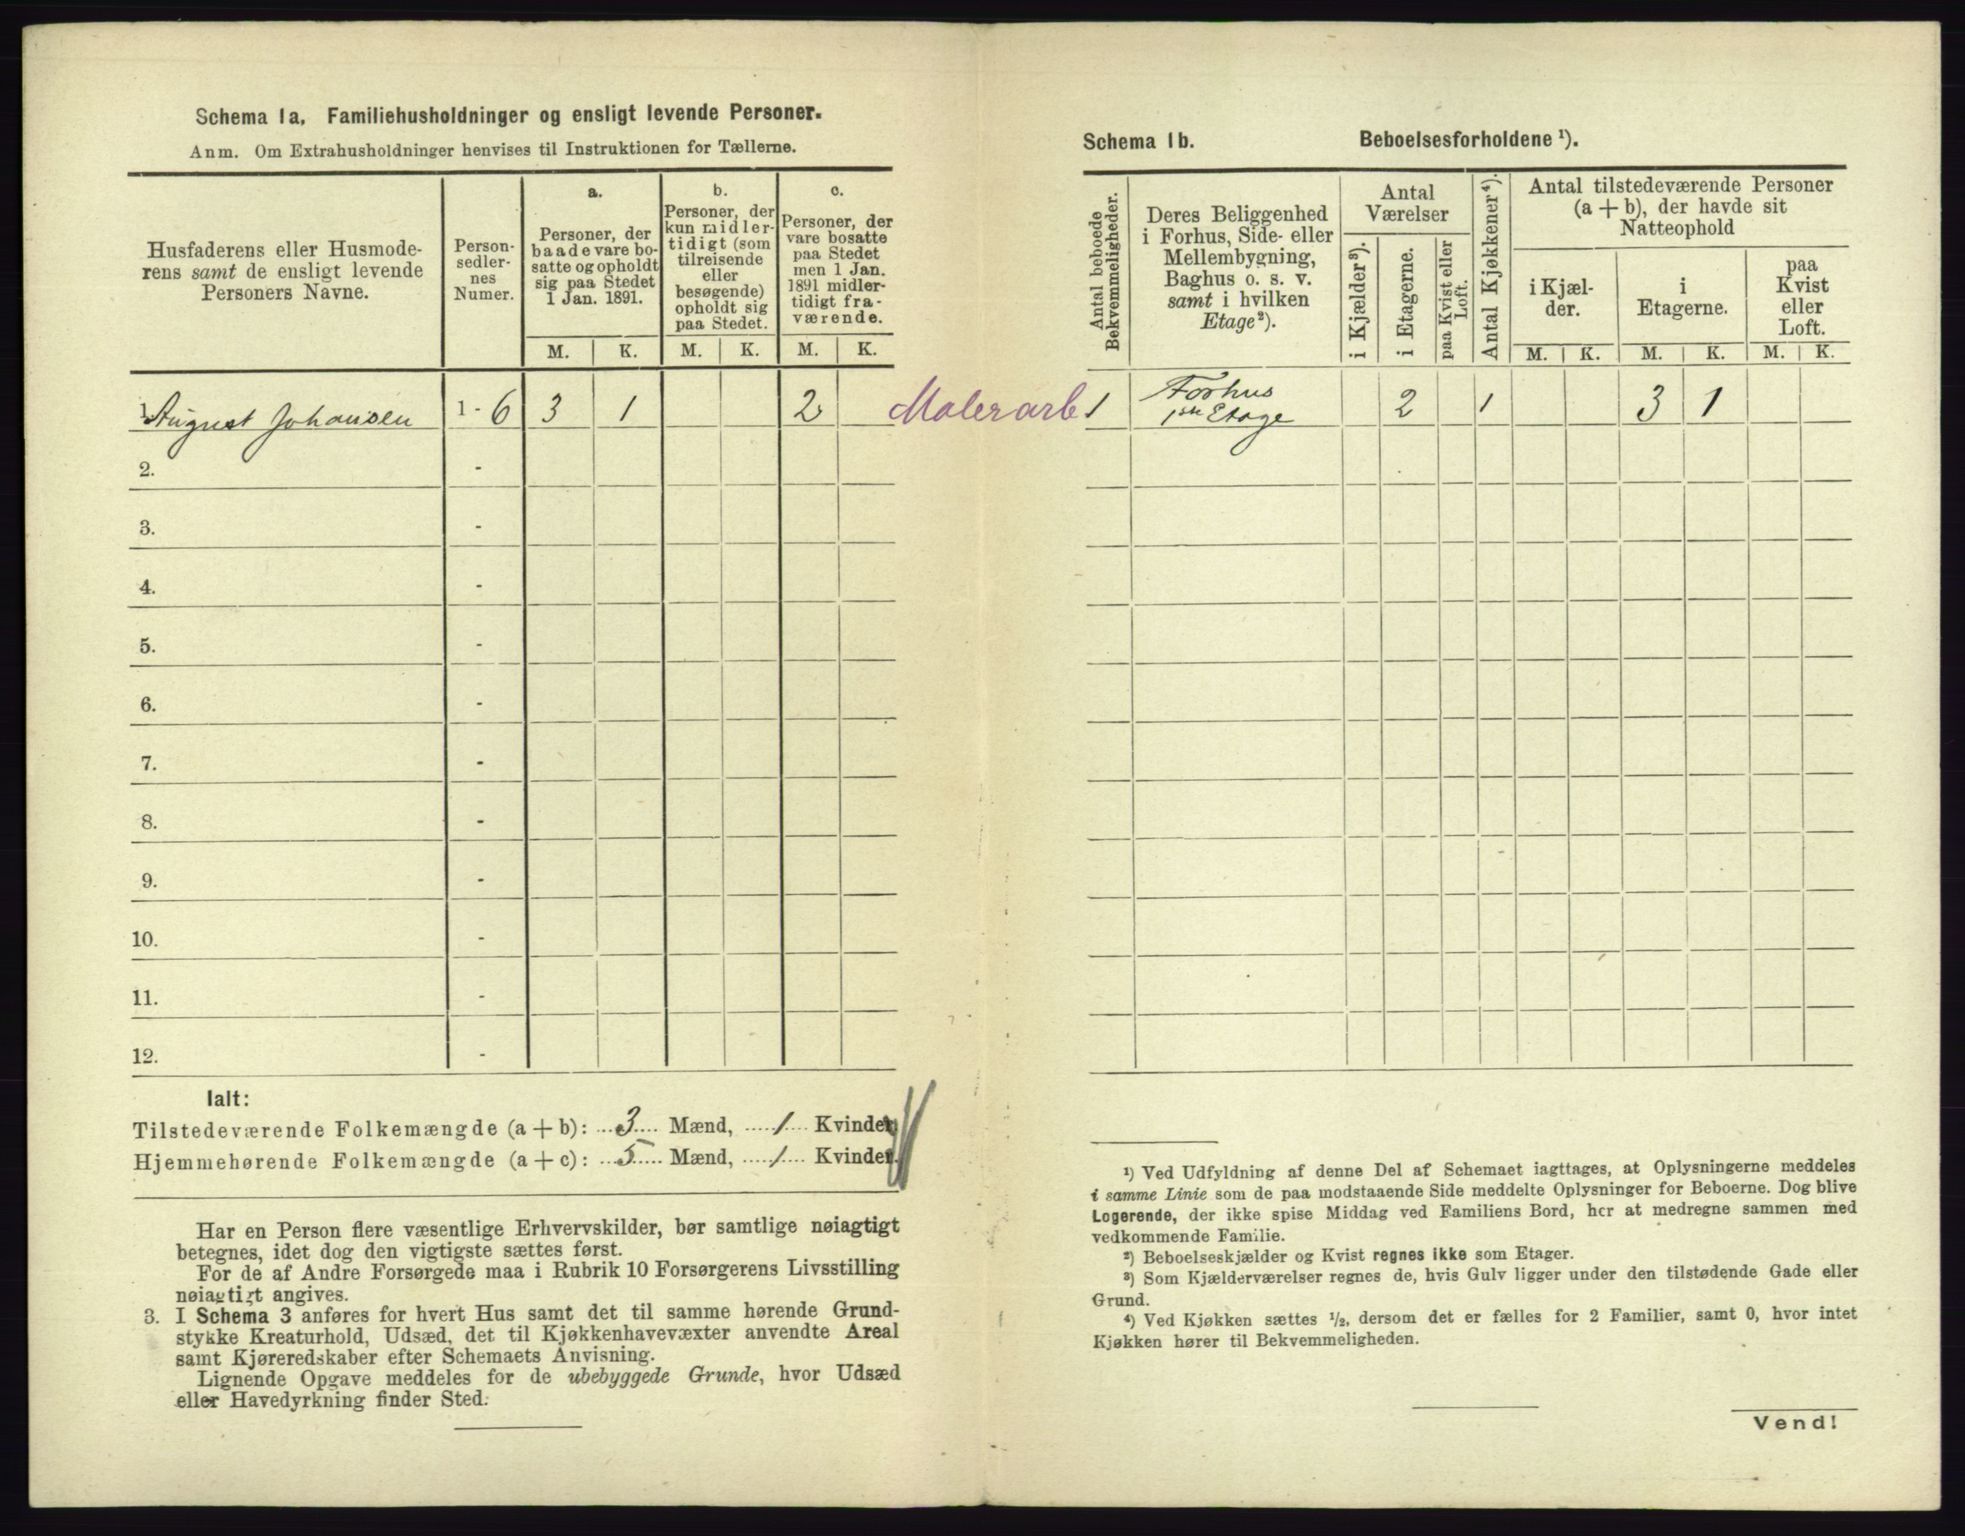 Schema 1a. Familiehusholdninger og ensligt levende Personer.
Anm. Om Extrahusholdninger henvises til Instruktionen for Tællerne.
Husfaderens eller Husmode-
rens samt de ensligt levende
Personers Navne.
Person-
sedler-
nes
Numer.
a.
Personer, der
baade vare bo-
satte og opholdt
sig paa Stedet
1 Jan. 1891.
b.
Personer, der
kun midler-
tidigt (som
tilreisende
eller
besøgende)
opholdt sig
paa Stedet.
c.
Personer, der
vare bosatte
paa Stedet
men 1 Jan.
1891 midler-
tidigt fra-
værende.
M. K. M. K. M. K.
1. August Johansen 1 - 6 3 1 2 Malerarb
2. -
3. -
4. -
5. -
6. -
7. -
8. -
9. -
10. -
11. -
12. -
Ialt:
Tilstedeværende Folkemængde (a + b): 3 Mænd, 1 Kvinder.
Hjemmehørende Folkemængde (a + c): 5 Mænd, 1 Kvinder.
Har en Person flere væsentlige Erhvervskilder, bør samtlige nøiagtigt
betegnes, idet dog den vigtigste sættes først.
For de af Andre Forsørgede maa i Rubrik 10 Forsørgerens Livsstilling
nøiagtigt angives.
3. I Schema 3 anføres for hvert Hus samt det til samme hørende Grund-
stykke Kreaturhold, Udsæd, det til Kjøkkenhavevæxter anvendte Areal
samt Kjøreredskaber efter Schemaets Anvisning.
Lignende Opgave meddeles for de ubebyggede Grunde, hvor Udsæd
eller Havedyrkning finder Sted.
Schema 1b. Beboelsesforholdene ¹).
Antal beboede
Bekvemmeligheder.
Deres Beliggenhed
i Forhus, Side- eller
Mellembygning,
Baghus o. s. v.
samt i hvilken
Etage²).
Antal
Værelser
i Kjælder³).
i Etagerne.
paa Kvist eller
Loft.
Antal Kjøkkener⁴).
Antal tilstedeværende Personer
(a + b), der havde sit
Natteophold
i Kjæl-
der.
i
Etagerne.
paa
Kvist
eller
Loft.
M. K. M. K. M. K.
1 Forhus 2 1 3 1
1ste Etage
¹) Ved Udfyldning af denne Del af Schemaet iagttages, at Oplysningerne meddeles
i samme Linie som de paa modstaaende Side meddelte Oplysninger for Beboerne. Dog blive
Logerende, der ikke spise Middag ved Familiens Bord, her at medregne sammen med
vedkommende Familie.
²) Beboelseskjælder og Kvist regnes ikke som Etager.
³) Som Kjælderværelser regnes de, hvis Gulv ligger under den tilstødende Gade eller
Grund.
⁴) Ved Kjøkken sættes ½, dersom det er fælles for 2 Familier, samt 0, hvor intet
Kjøkken hører til Bekvemmeligheden.
Vend!